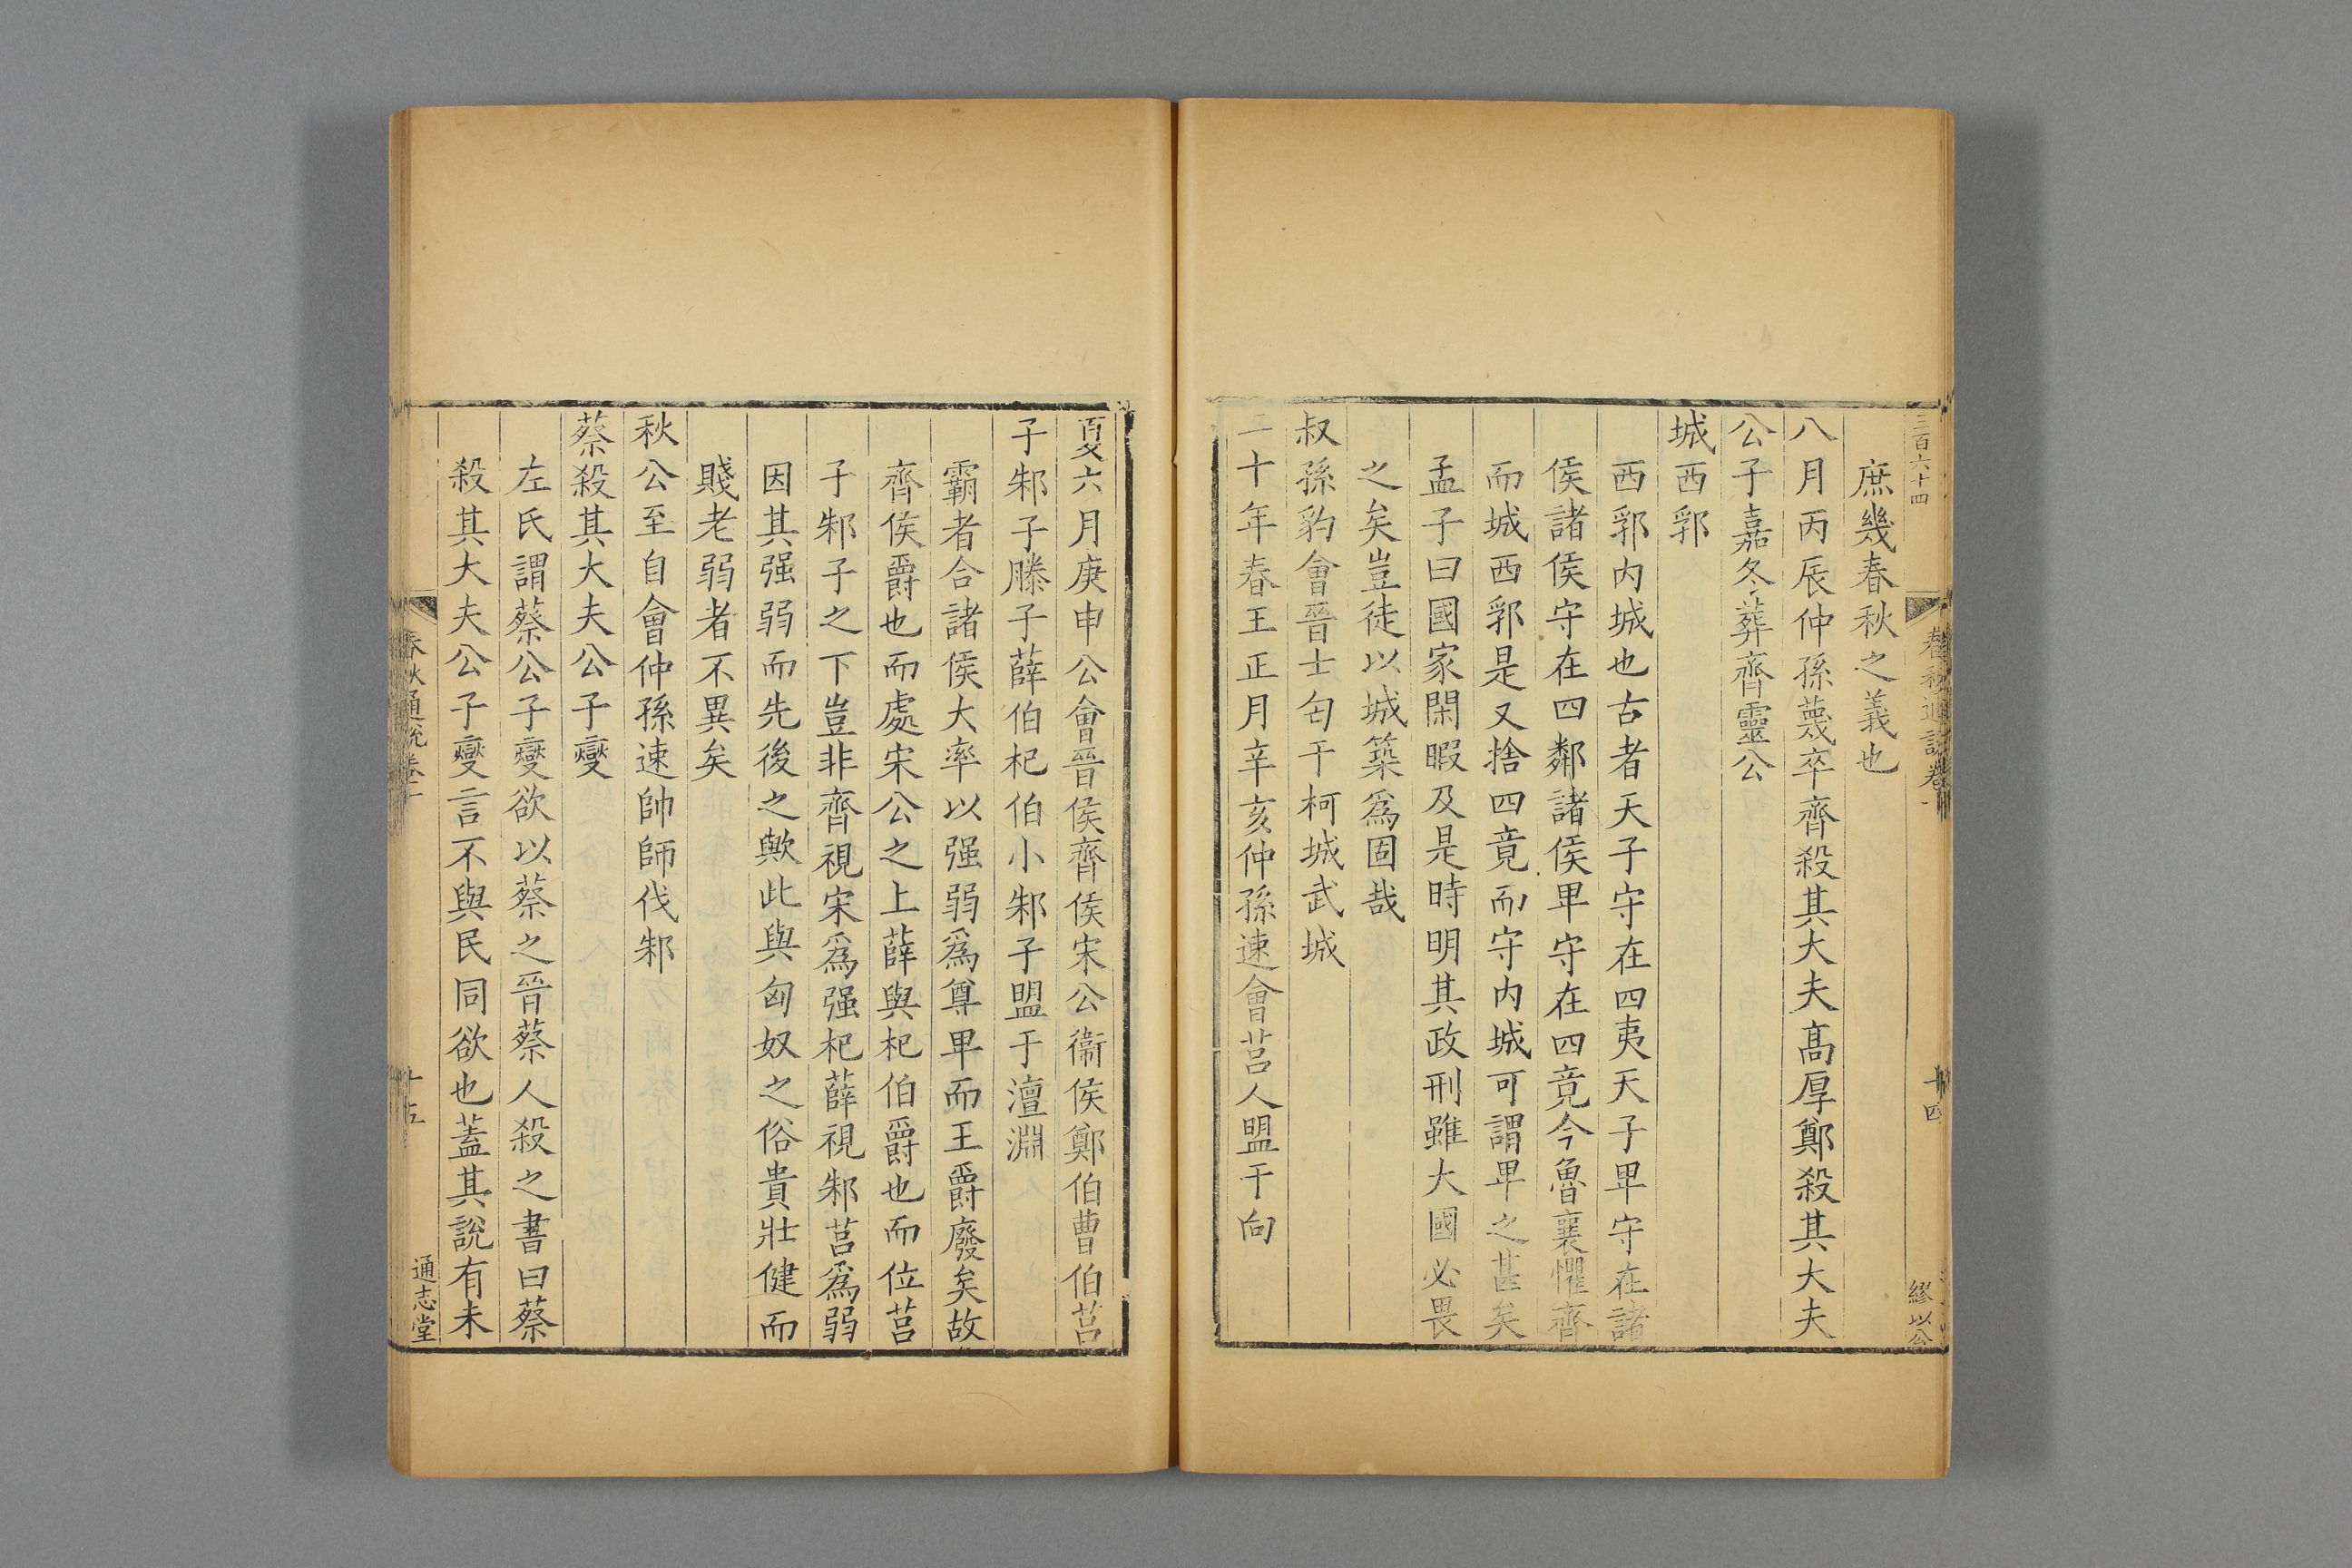 三百六十四
庶幾春秋之義也
八月丙辰仲孫蔑卒齊殺其大夫高厚鄭殺其大夫
公子嘉冬葬齊靈公
城西郛
西郛内城也古者天子守在四夷天子卑守在諸
侯諸侯守在四鄰諸侯卑守在四竟今魯襄懼齊
而城西郛是又捨四竟而守内城可謂卑之甚矣
孟子曰國家閑暇及是時明其政刑雖大國必畏
之矣豈徒以城築爲固哉
叔孫豹會晉士匄于柯城武城
二十年春王正月辛亥仲孫速會莒人盟于向
夏六月庚申公會晉侯齊侯宋公衞侯鄭伯曹伯莒
子邾子滕子薛伯杞伯小邾子盟于澶淵
霸者合諸侯大率以强弱爲尊卑而王爵廢矣故
齊侯爵也而處宋公之上薛與杞伯爵也而位莒
子邾子之下豈非齊視宋爲强杞薛視邾莒爲弱
因其强弱而先後之歟此與匈奴之俗貴壯健而
賤老弱者不異矣
秋公至自會仲孫速帥師伐邾
蔡殺其大夫公子燮
左氏謂蔡公子燮欲以蔡之晉蔡人殺之書曰蔡
殺其大夫公子燮言不與民同欲也蓋其說有未
春秋通說卷十
十五
通志堂